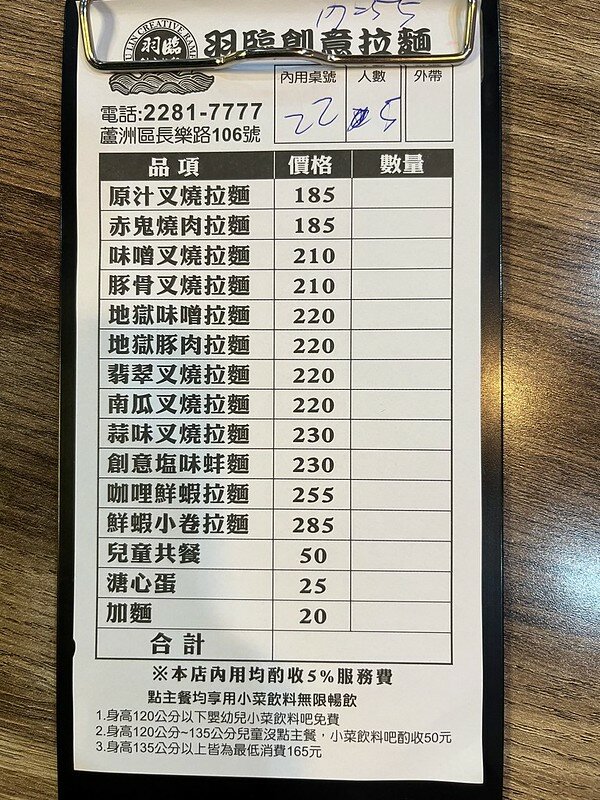 17=55
羽臨
羽臨創意拉麵
電話:2281-7777
蘆洲區長樂路106號
內用桌號 人數 外帶
22 5
品項 價格 數量
原汁叉燒拉麵 185
赤鬼燒肉拉麵 185
味噌叉燒拉麵 210
豚骨叉燒拉麵 210
地獄味噌拉麵 220
地獄豚肉拉麵 220
翡翠叉燒拉麵 220
南瓜叉燒拉麵 220
蒜味叉燒拉麵 230
創意塩味蚌麵 230
咖哩鮮蝦拉麵 255
鮮蝦小卷拉麵 285
兒童共餐 50
溏心蛋 25
加麵 20
合計
※本店內用均酌收5%服務費
點主餐均享用小菜飲料無限暢飲
1.身高120公分以下嬰幼兒小菜飲料吧免費
2.身高120公分~135公分兒童沒點主餐，小菜飲料吧酌收50元
3.身高135公分以上皆為最低消費165元